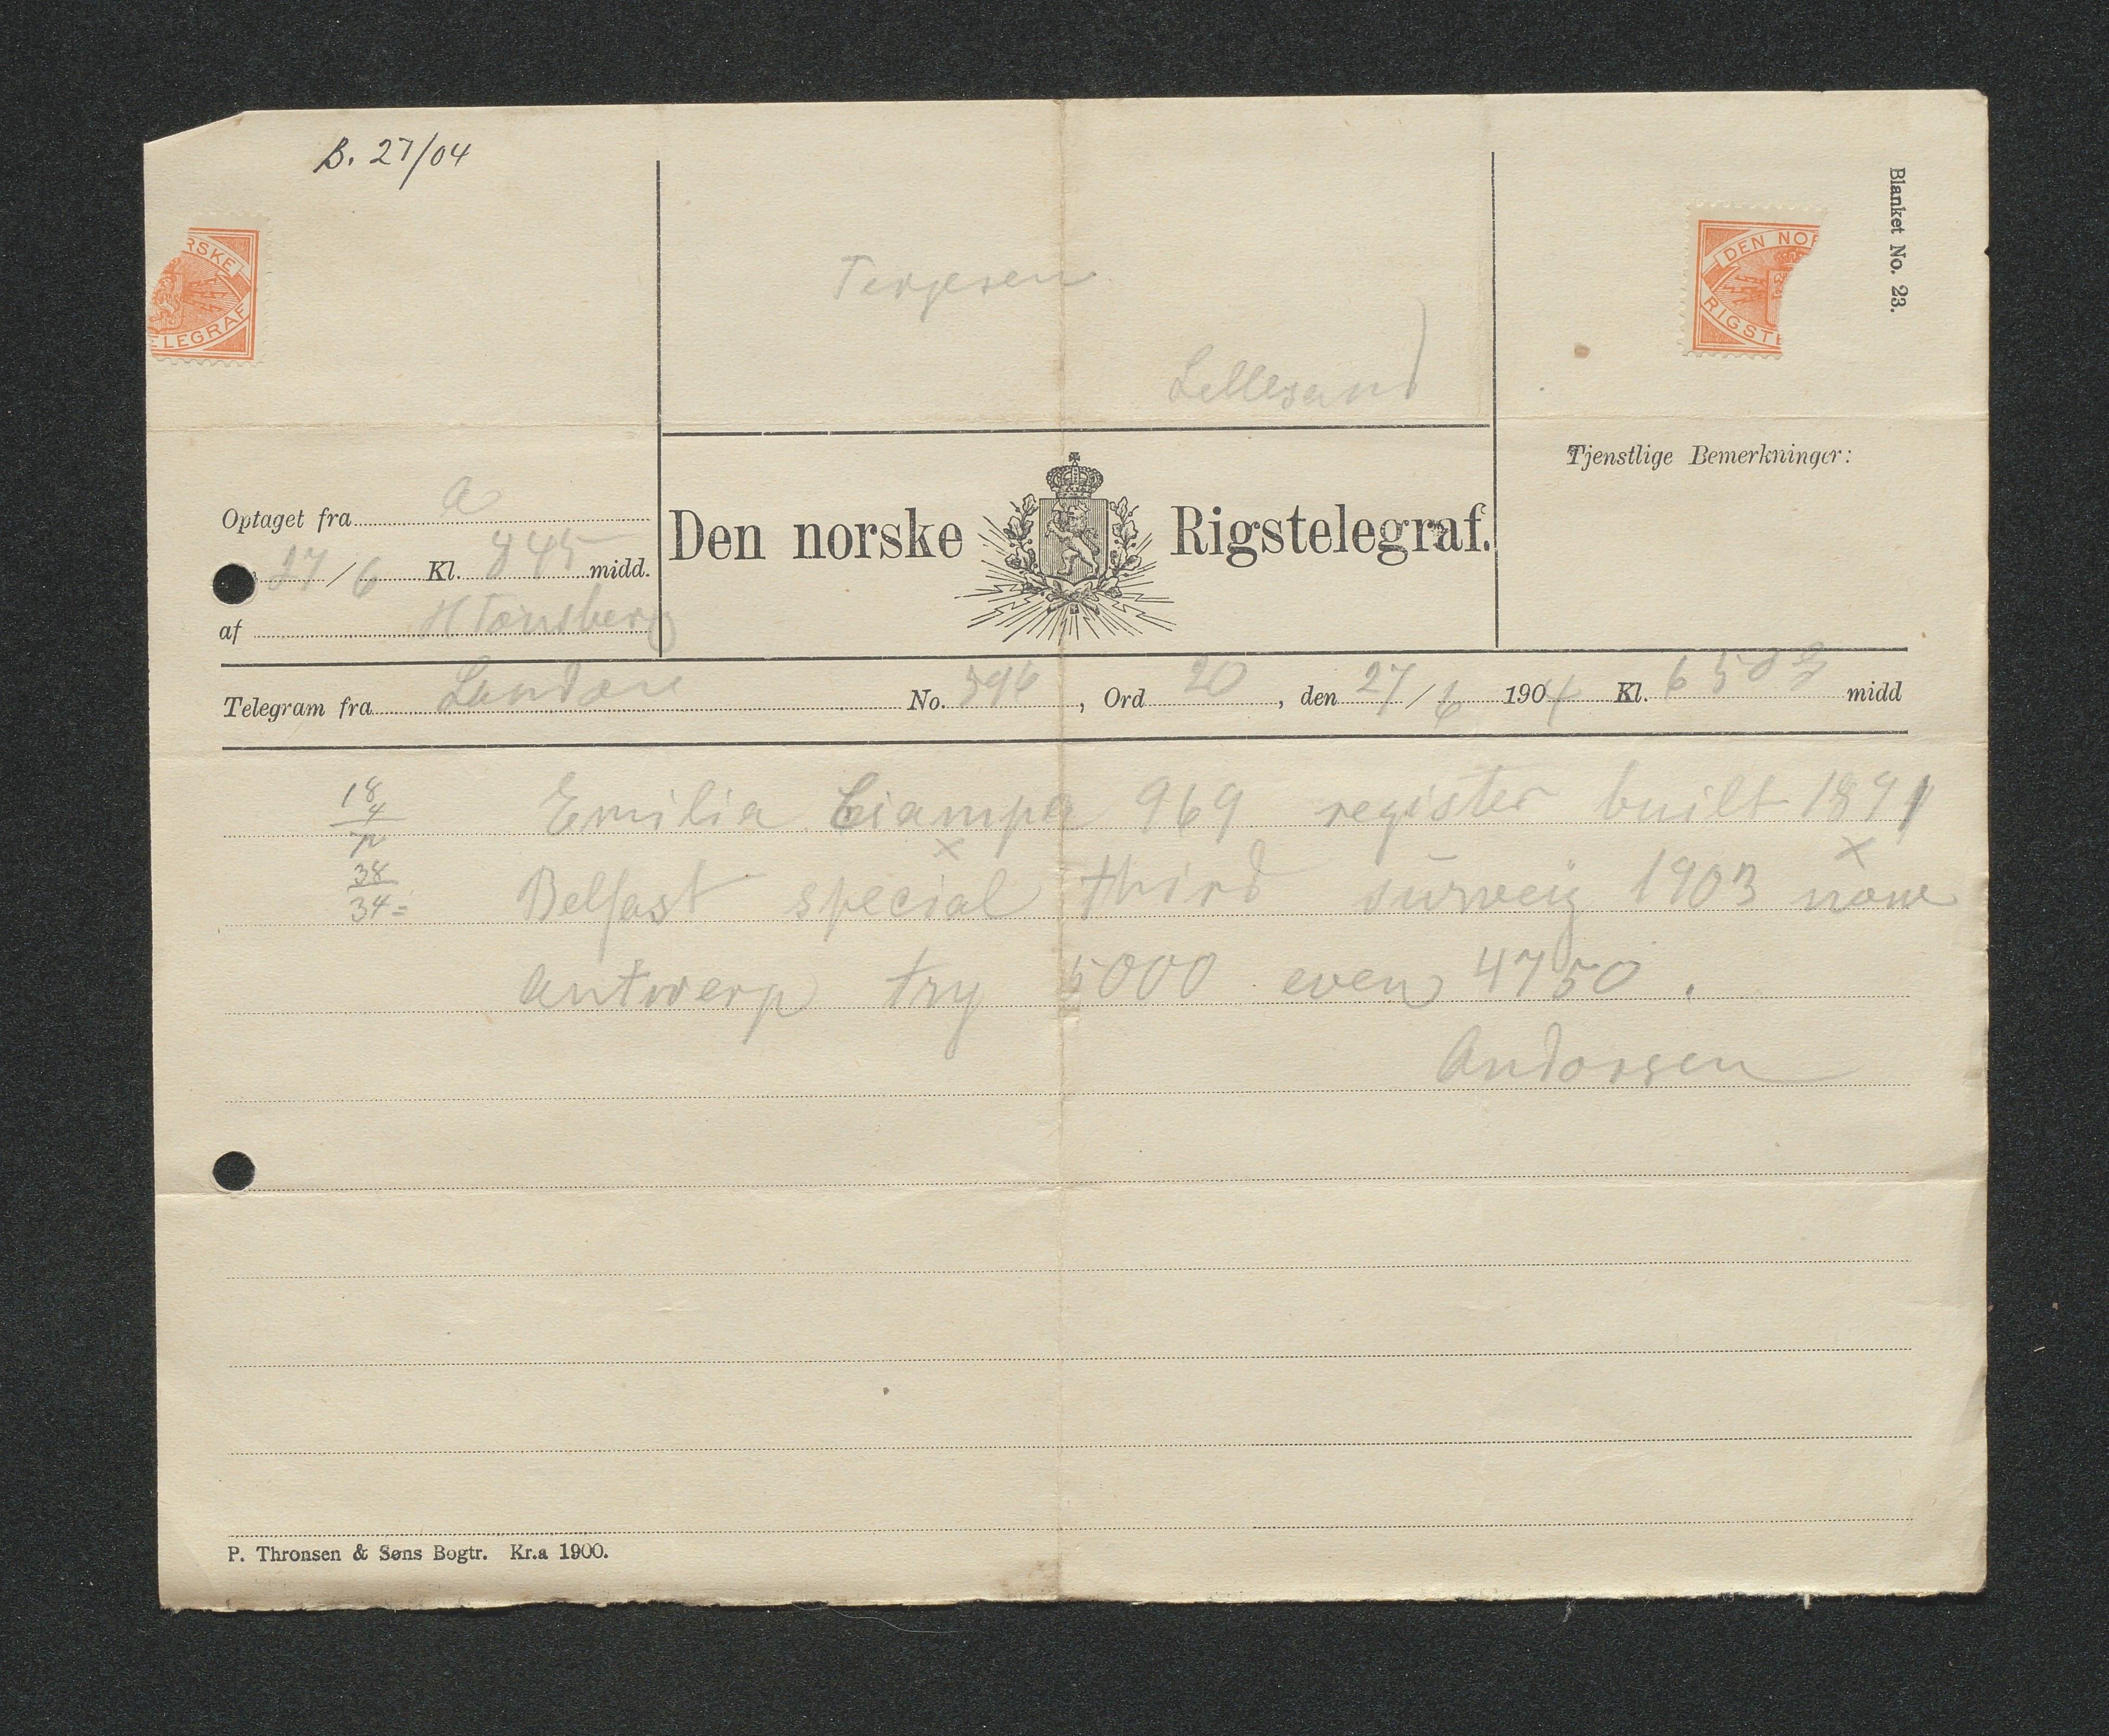 B. 27/04
RSKE
ELEGRAF
Terjesen
Lillesand
DEN NOR
RIGSTE
Blanket No. 23.
Tjenstlige Bemerkninger:
Optaget fra a
27/6 Kl. 845 midd.
af HTønsberg
Den norske Rigstelegraf.
Telegram fra London No. 596, Ord 20, den 27/6 1904 Kl. 6 50 midd
18/4
Emilia Ciampa 969 register built 1891
38
34=
Belfast special third survey 1903 now
antwerp try 5000 even 4750.
Andorsen
P. Thronsen & Søns Bogtr. Kr.a 1900.